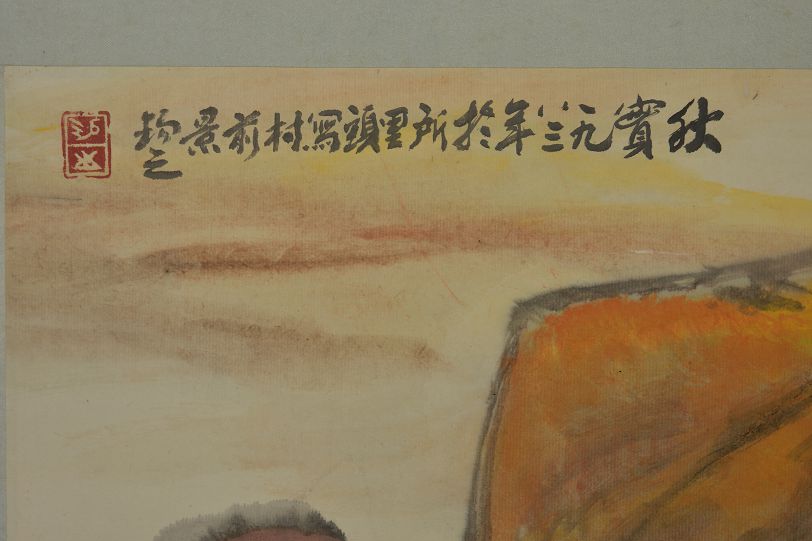 秋實九三年於所里頭寫村前景